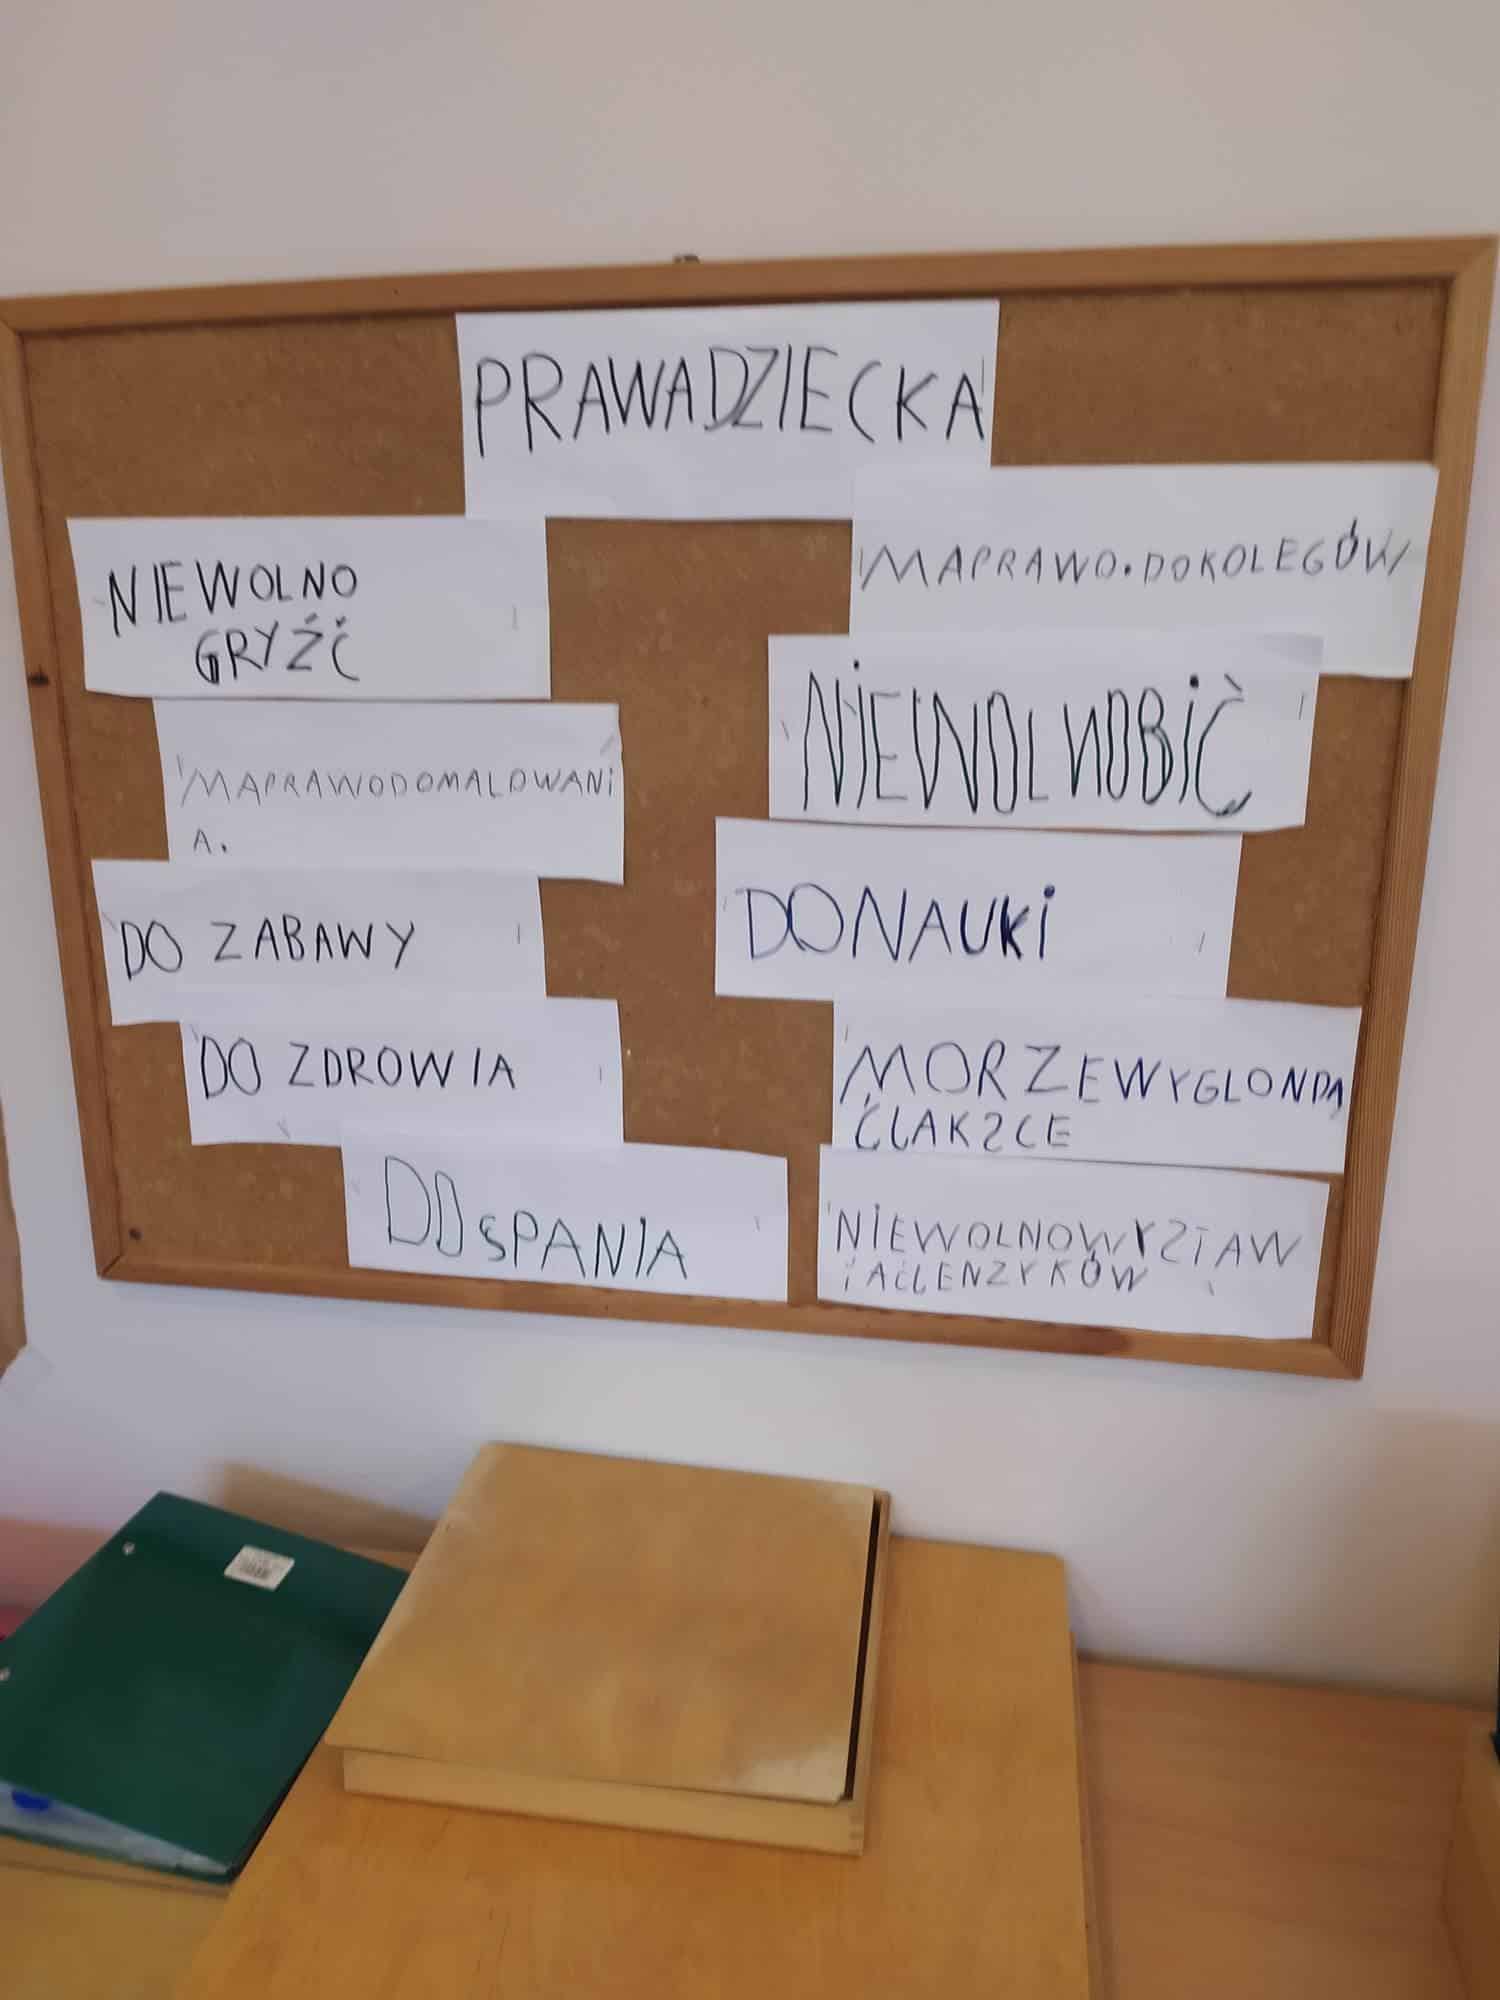 PRAWADZIECKA
NIEWOLNO
GRYŹĆ
MAPRAWODOMALOWANi
A.
DO ZABAWY
DO ZDROWIA
DO SPANIA
MAPRAWO.DOKOLEGÓW
NiEWOLNOBiĆ
DONAUKi
MORZEWYGLONDA
ĆLAKSCE
NiEWOLNOWYSTAW
iAĆLENZYKÓW